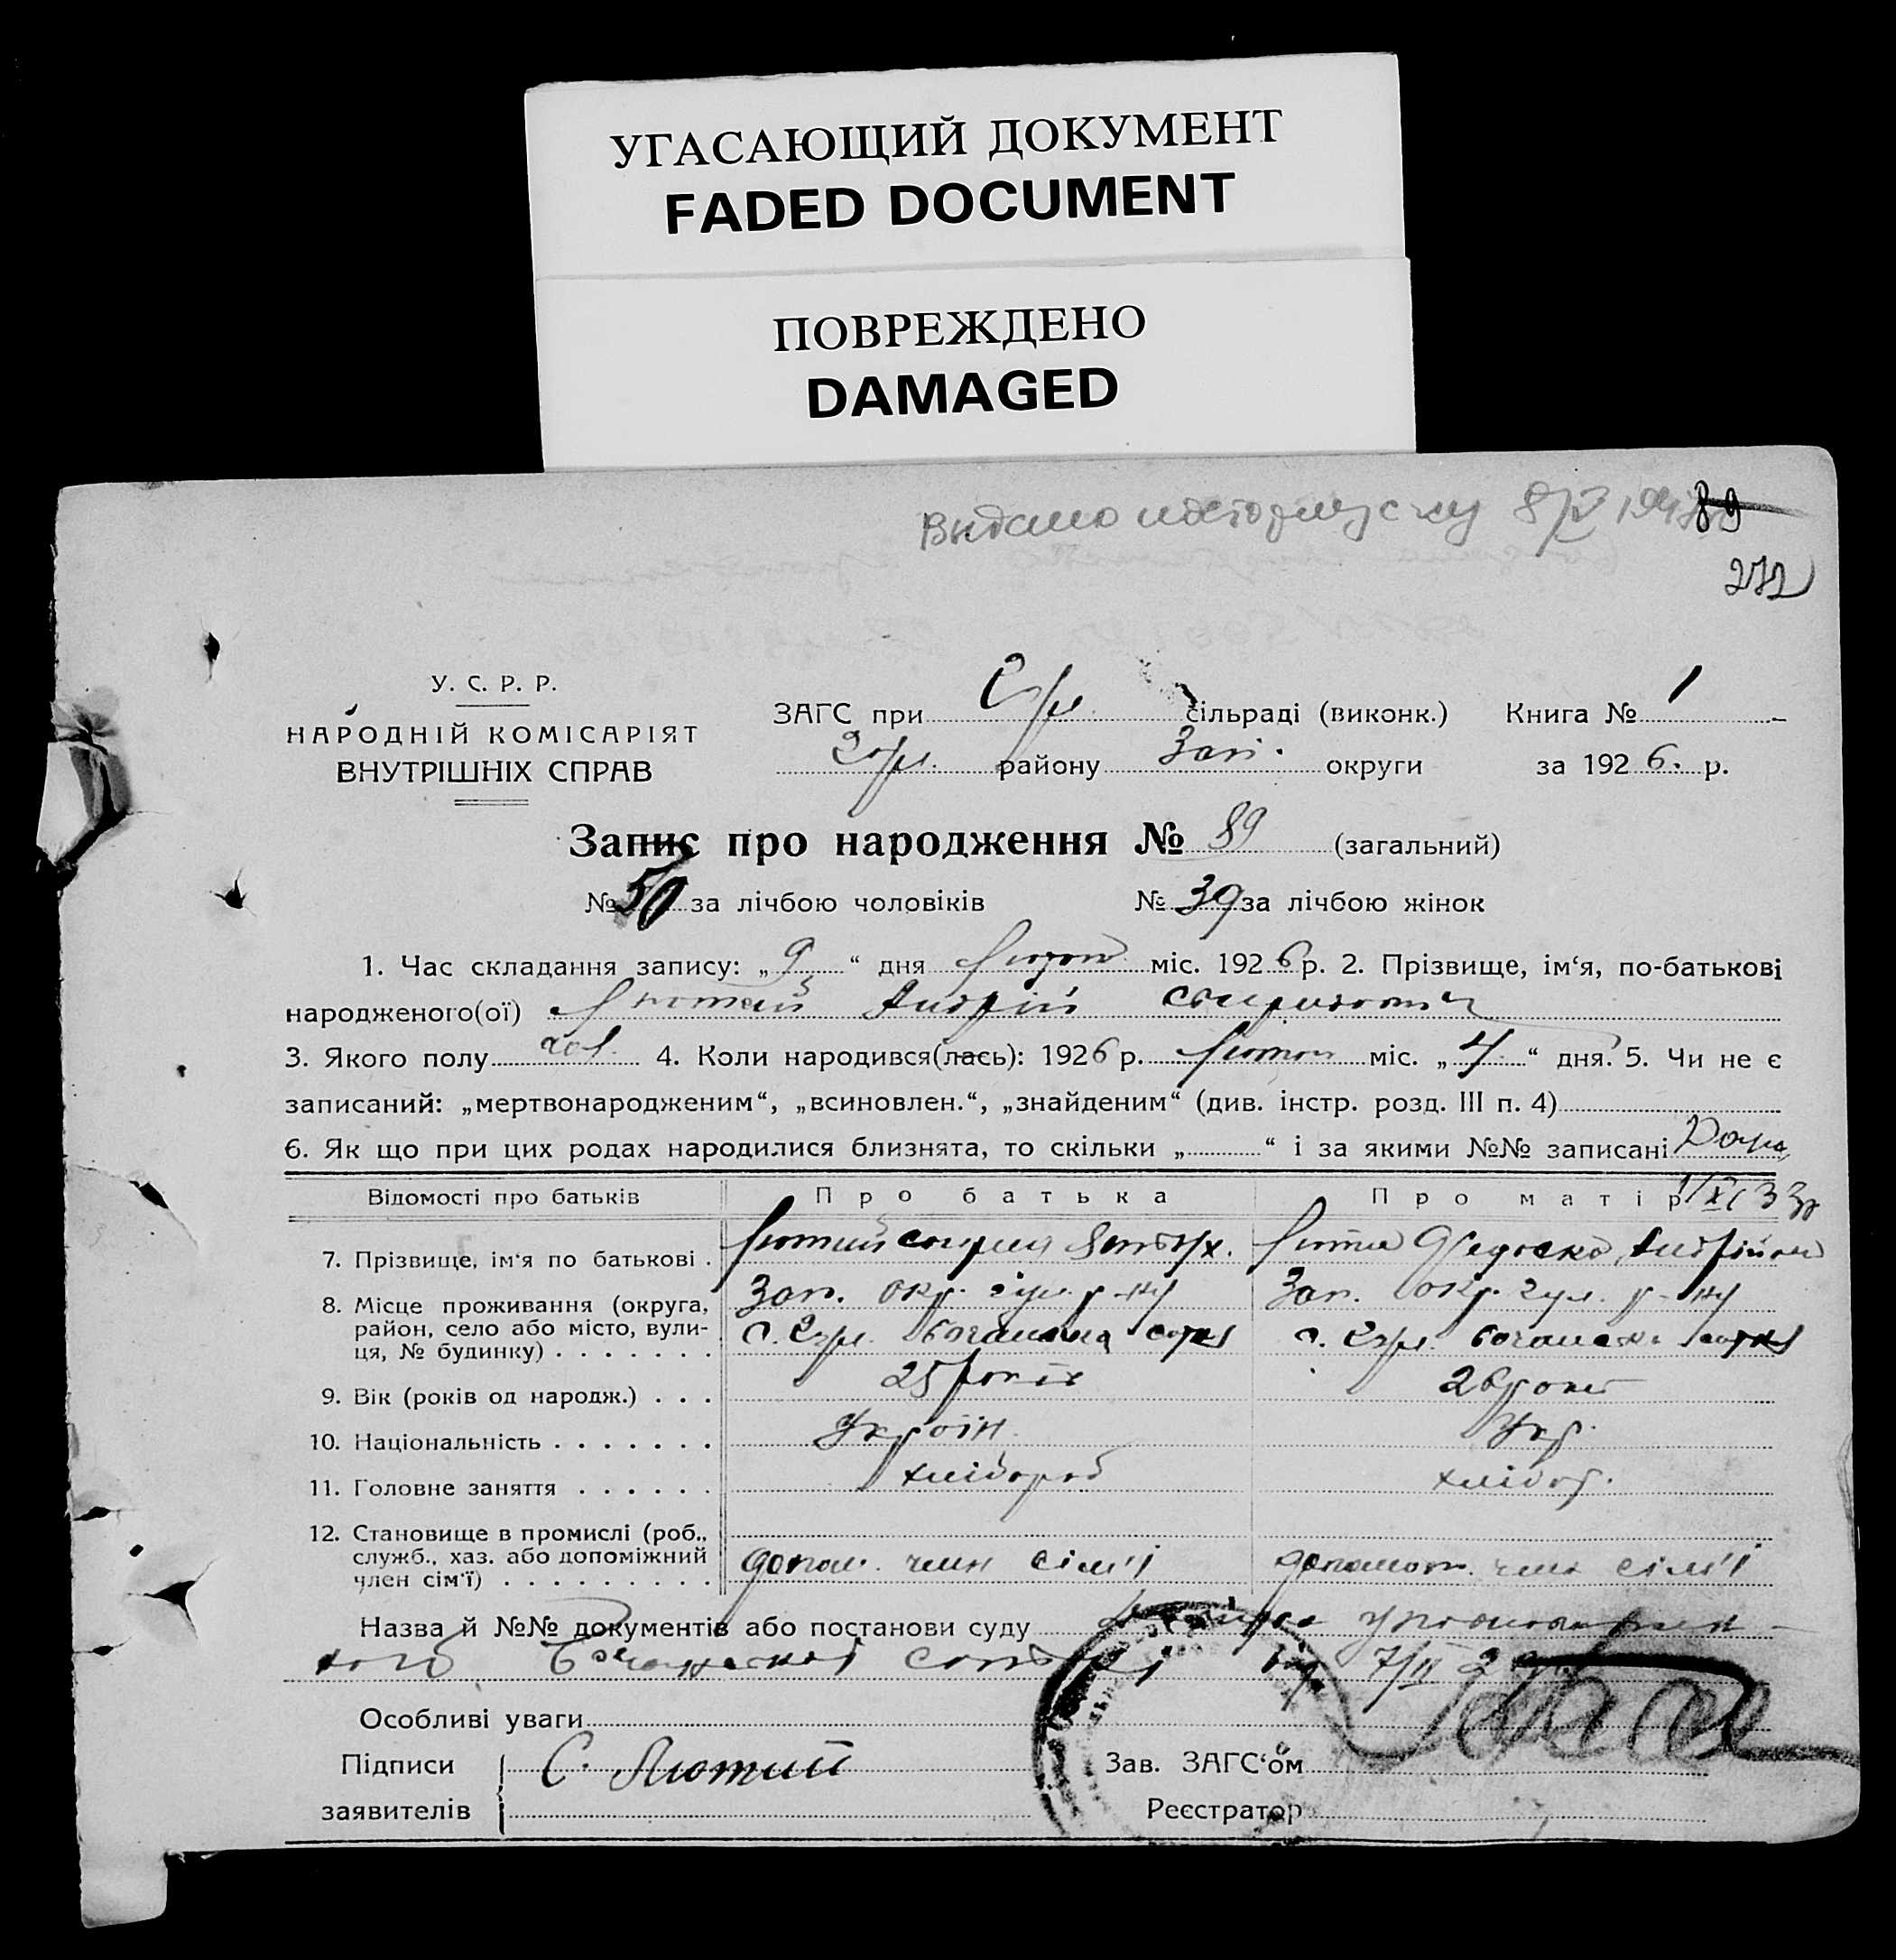 УГАСАЮЩИЙ ДОКУМЕНТ
FADED DOCUMENT
ПОВРЕЖДЕНО
DAMAGED
Видано 8/2
89
272
У. С. Р. Р.
НАРОДНІЙ КОМІСАРІЯТ
ВНУТРІШНІХ СПРАВ
ЗАГС при Гул. сільраді (виконк.) Книга № 1
Гул. району Зап. округи за 1926. р.
Запис про народження № 89 (загальний)
№ 50 за лічбою чоловіків № 39 за лічбою жінок
1. Час складання запису: „9“ дня Лютого міс. 1926 р. 2. Прізвище, ім‘я, по-батькові
народженого(ої) Лютий Андрій
3. Якого полу чол. 4. Коли народився(лась): 1926 р. Лютого міс. „4“ дня. 5. Чи не є
записаний: „мертвонародженим“, „всиновлен.“, „знайденим“ (див. інстр. розд. III п. 4)
6. Як що при цих родах народилися близнята, то скільки „ “ і за якими №№ записані
Відомості про батьків Про батька Про матір
7. Прізвище, ім‘я по батькові . Лютий Люта Андріївна
8. Місце проживання (округа, Зап. окр. Гул. р-ну Зап. окр. Гул. р-ну
район, село або місто, вули- с. Гул. с. Гул.
ця, № будинку) . . . . . . .
9. Вік (років од народж.) . . . 25 років 26 років
10. Національність . . . . . . . Україн. Укр.
11. Головне заняття . . . . . . хлібороб хлібор.
12. Становище в промислі (роб.,
служб., хаз. або допоміжний допом. член сім'ї допомог. член сім'ї
член сім‘ї) . . . . . . . . .
Назва й №№ документів або постанови суду
7/II
Особливі уваги
Підписи С. Лютий Зав. ЗАГС‘ом
заявителів Реєстратор